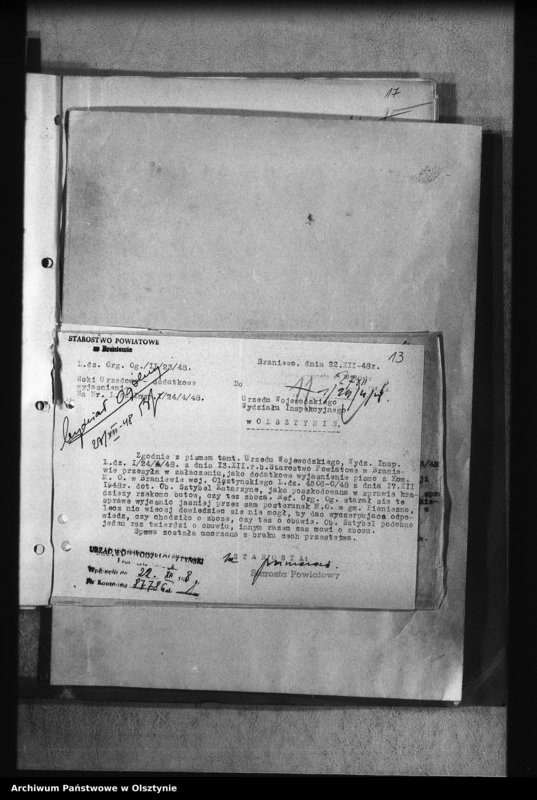 17
STAROSTWO POWIATOWE
w Braniewie
13
L.dz. Org. Og./II/23/48.
Braniewo, dnia 22.XII-48r.
dodatkowe
wyjaśnienie
Na Nr. I/24/4/48.
Do
Urzędu Wojewódzkiego
Wydziału Inspekcyjnego
w OLSZTYNIE.
28/XII-48
Zgodnie z pismem tamt. Urzędu Wojewódzkiego, Wydz. Insp.
L.dz. I/24/4/48. z dnia 13.XII.r.b. Starostwo Powiatowe w Branie-
wie przesyła w załączeniu, jako dodatkowe wyjaśnienie pismo z Kom.
M. O. w Braniewie woj. Olsztyńskiego L.dz. 4505-0/48 z dnia 17.XII
1948r. dot. Ob. Sztybel Katarzyna, jako poszkodowana w sprawie kra-
dzieży rzekomo butów, czy też zboża. Ref. Org. Og. starał się te
sprawę wyjaśnić jaśniej przez sam posterunek M.O. w gm. Pieniężno,
lecz nic więcej dowiedzieć się nie mógł, by dać wyczerpującą odpo-
wiedź, czy chodziło o zboże, czy też o obuwie. Ob. Sztybel podobno
jeden raz twierdzi o obuwiu, innym razem zaś mówi o zbożu.
Spawa została umorzona z braku cech przestępstwa.
STAROSTA:
Starosta Powiatowy
URZĄD WOJEWÓDZKI OLSZTYŃSKI
Wpłynęło dn. 22. XII 1948 r.
Archiwum Państwowe w Olsztynie